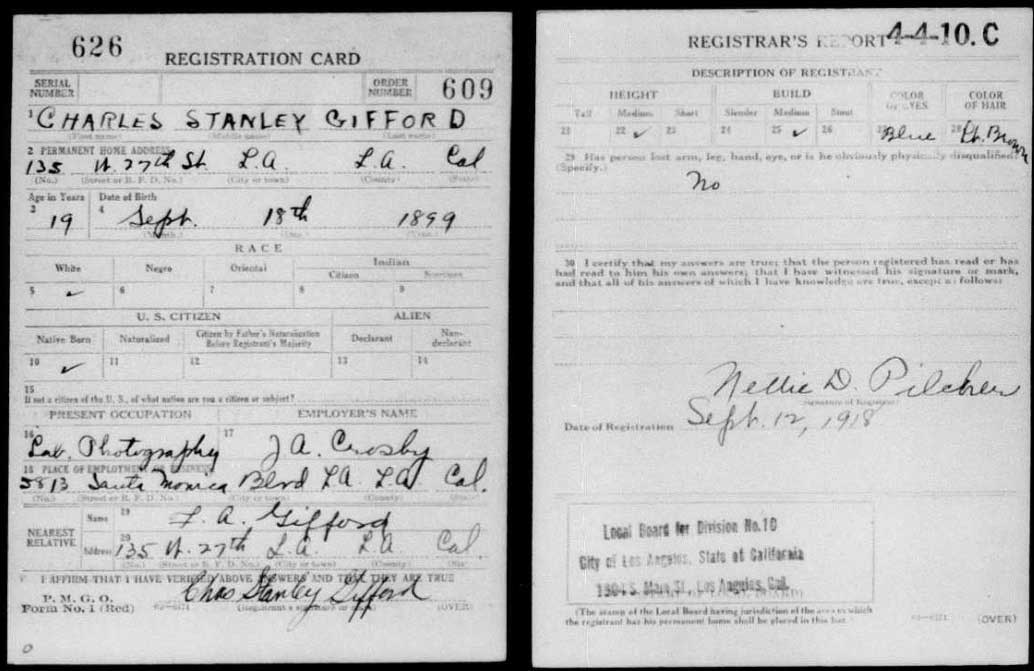 626
REGISTRATION CARD
SERIAL NUMBER
ORDER NUMBER 609
1 CHARLES STANLEY GIFFORD
(First name) (Middle name) (Last name)
2 PERMANENT HOME ADDRESS
135 W. 27th St. L.A. L.A. Cal
(No.) (Street or R. F. D. No.) (City or town) (County) (State)
Age in Years Date of Birth
3 19 4 Sept. 18th 1899
(Month.) (Day.) (Year.)
RACE
White Negro Oriental Indian
Citizen Noncitizen
5 ✓ 6 7 8 9
U. S. CITIZEN ALIEN
Native Born Naturalized Citizen by Father's Naturalization Before Registrant's Majority Declarant Non-declarant
10 ✓ 11 12 13 14
15
If not a citizen of the U. S., of what nation are you a citizen or subject?
PRESENT OCCUPATION EMPLOYER'S NAME
16 Lab. Photography 17 J A. Crosby
18 PLACE OF EMPLOYMENT OR BUSINESS
5813 Santa Monica Blvd L.A. L.A. Cal.
(No.) (Street or R. F. D. No.) (City or town) (County) (State)
NEAREST RELATIVE
Name 19 F. A. Gifford
Address 20 135 W. 27th L.A. L.A. Cal.
(No.) (Street or R. F. D. No.) (City or town) (County) (State)
I AFFIRM THAT I HAVE VERIFIED ABOVE ANSWERS AND THAT THEY ARE TRUE
P. M. G. O.
Form No. 1 (Red) Chas Stanley Gifford
(Registrant's signature or mark) (OVER)
REGISTRAR'S REPORT 4-4-10. C
DESCRIPTION OF REGISTRANT
HEIGHT BUILD COLOR OF EYES COLOR OF HAIR
Tall Medium Short Slender Medium Stout
21 22 ✓ 23 24 25 ✓ 26 27 Blue 28 Lt. Brown
29 Has person lost arm, leg, hand, eye, or is he obviously physically disqualified?
(Specify.)
No
30 I certify that my answers are true; that the person registered has read or has
had read to him his own answers; that I have witnessed his signature or mark,
and that all of his answers of which I have knowledge are true, except as follows:
Nellie D. Pilcher
(Signature of Registrar)
Date of Registration Sept. 12, 1918
Local Board for Division No. 10
City of Los Angeles, State of California
St. Los Angeles, Cal.
(The stamp of the Local Board having jurisdiction of the area in which
the registrant has his permanent home shall be placed in this box.)
(OVER)